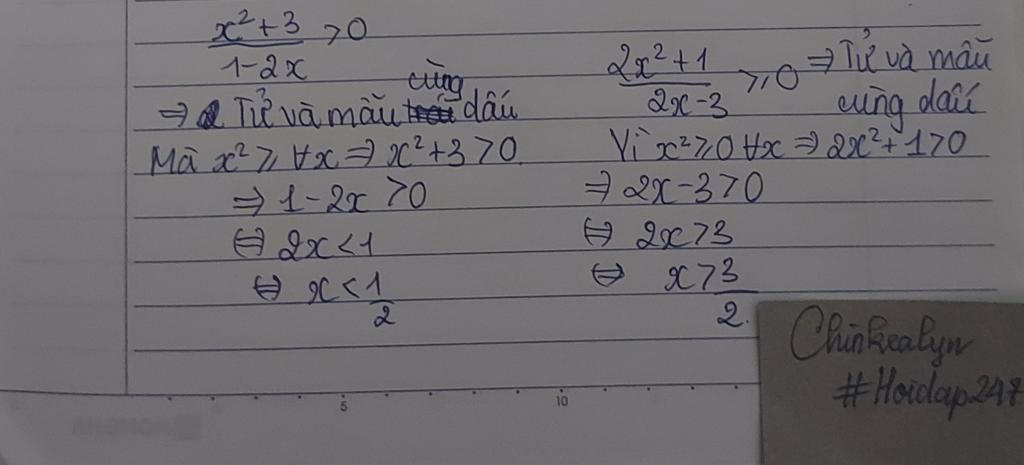 x²+3 / 1-2x > 0
⇒ Tử và mẫu cùng dấu
Mà x² ≥ ∀x ⇒ x²+3 > 0
⇒ 1-2x > 0
⇔ 2x < 1
⇔ x < 1/2
2x²+1 / 2x-3 ≥ 0 ⇒ Tử và mẫu
cùng dấu
Vì x² ≥ 0 ∀x ⇒ 2x²+1 > 0
⇒ 2x-3 > 0
⇔ 2x > 3
⇔ x > 3/2.
5 10
Chinkealyn
#Hoidap247